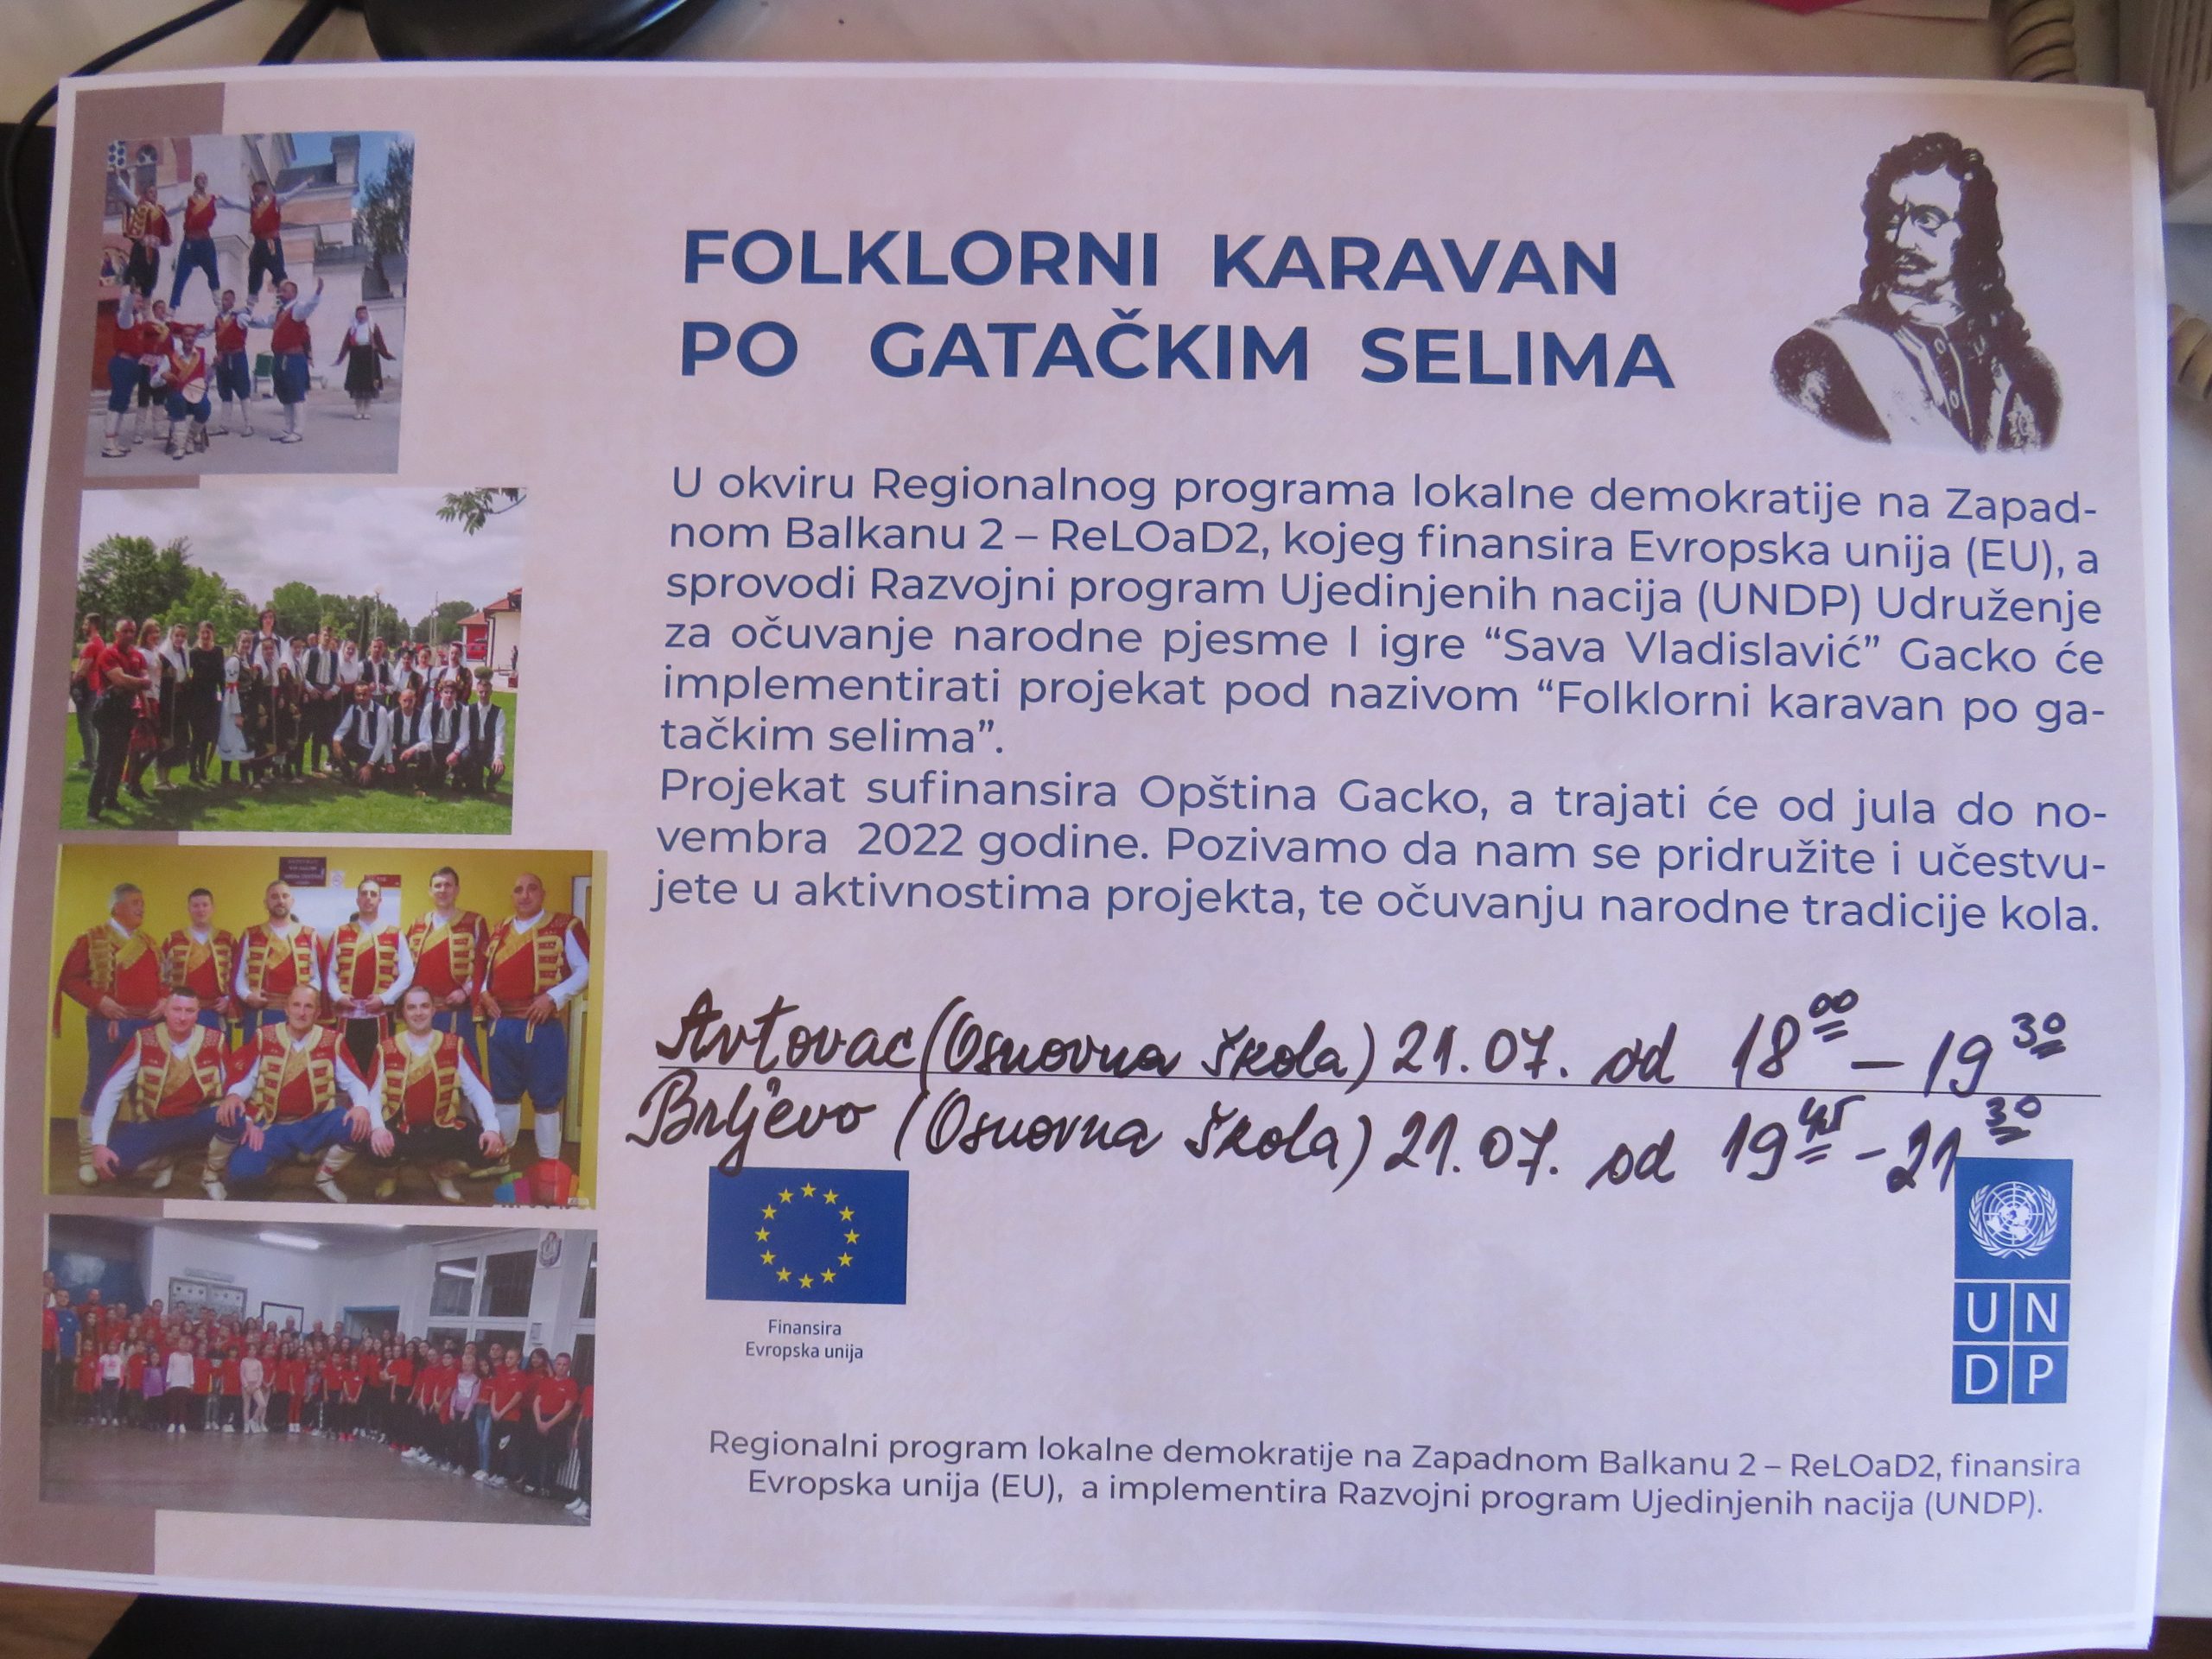 FOLKLORNI KARAVAN
PO GATAČKIM SELIMA
U okviru Regionalnog programa lokalne demokratije na Zapad-
nom Balkanu 2 – ReLOaD2, kojeg finansira Evropska unija (EU), a
sprovodi Razvojni program Ujedinjenih nacija (UNDP) Udruženje
za očuvanje narodne pjesme I igre “Sava Vladislavić” Gacko će
implementirati projekat pod nazivom “Folklorni karavan po ga-
tačkim selima”.
Projekat sufinansira Opština Gacko, a trajati će od jula do no-
vembra 2022 godine. Pozivamo da nam se pridružite i učestvu-
jete u aktivnostima projekta, te očuvanju narodne tradicije kola.
Avtovac (Osnovna škola) 21.07. od 18 00 – 19 30
Brljevo (Osnovna škola) 21.07. od 19 45 - 21 30
Finansira
Evropska unija
U N
D P
Regionalni program lokalne demokratije na Zapadnom Balkanu 2 – ReLOaD2, finansira
Evropska unija (EU), a implementira Razvojni program Ujedinjenih nacija (UNDP).